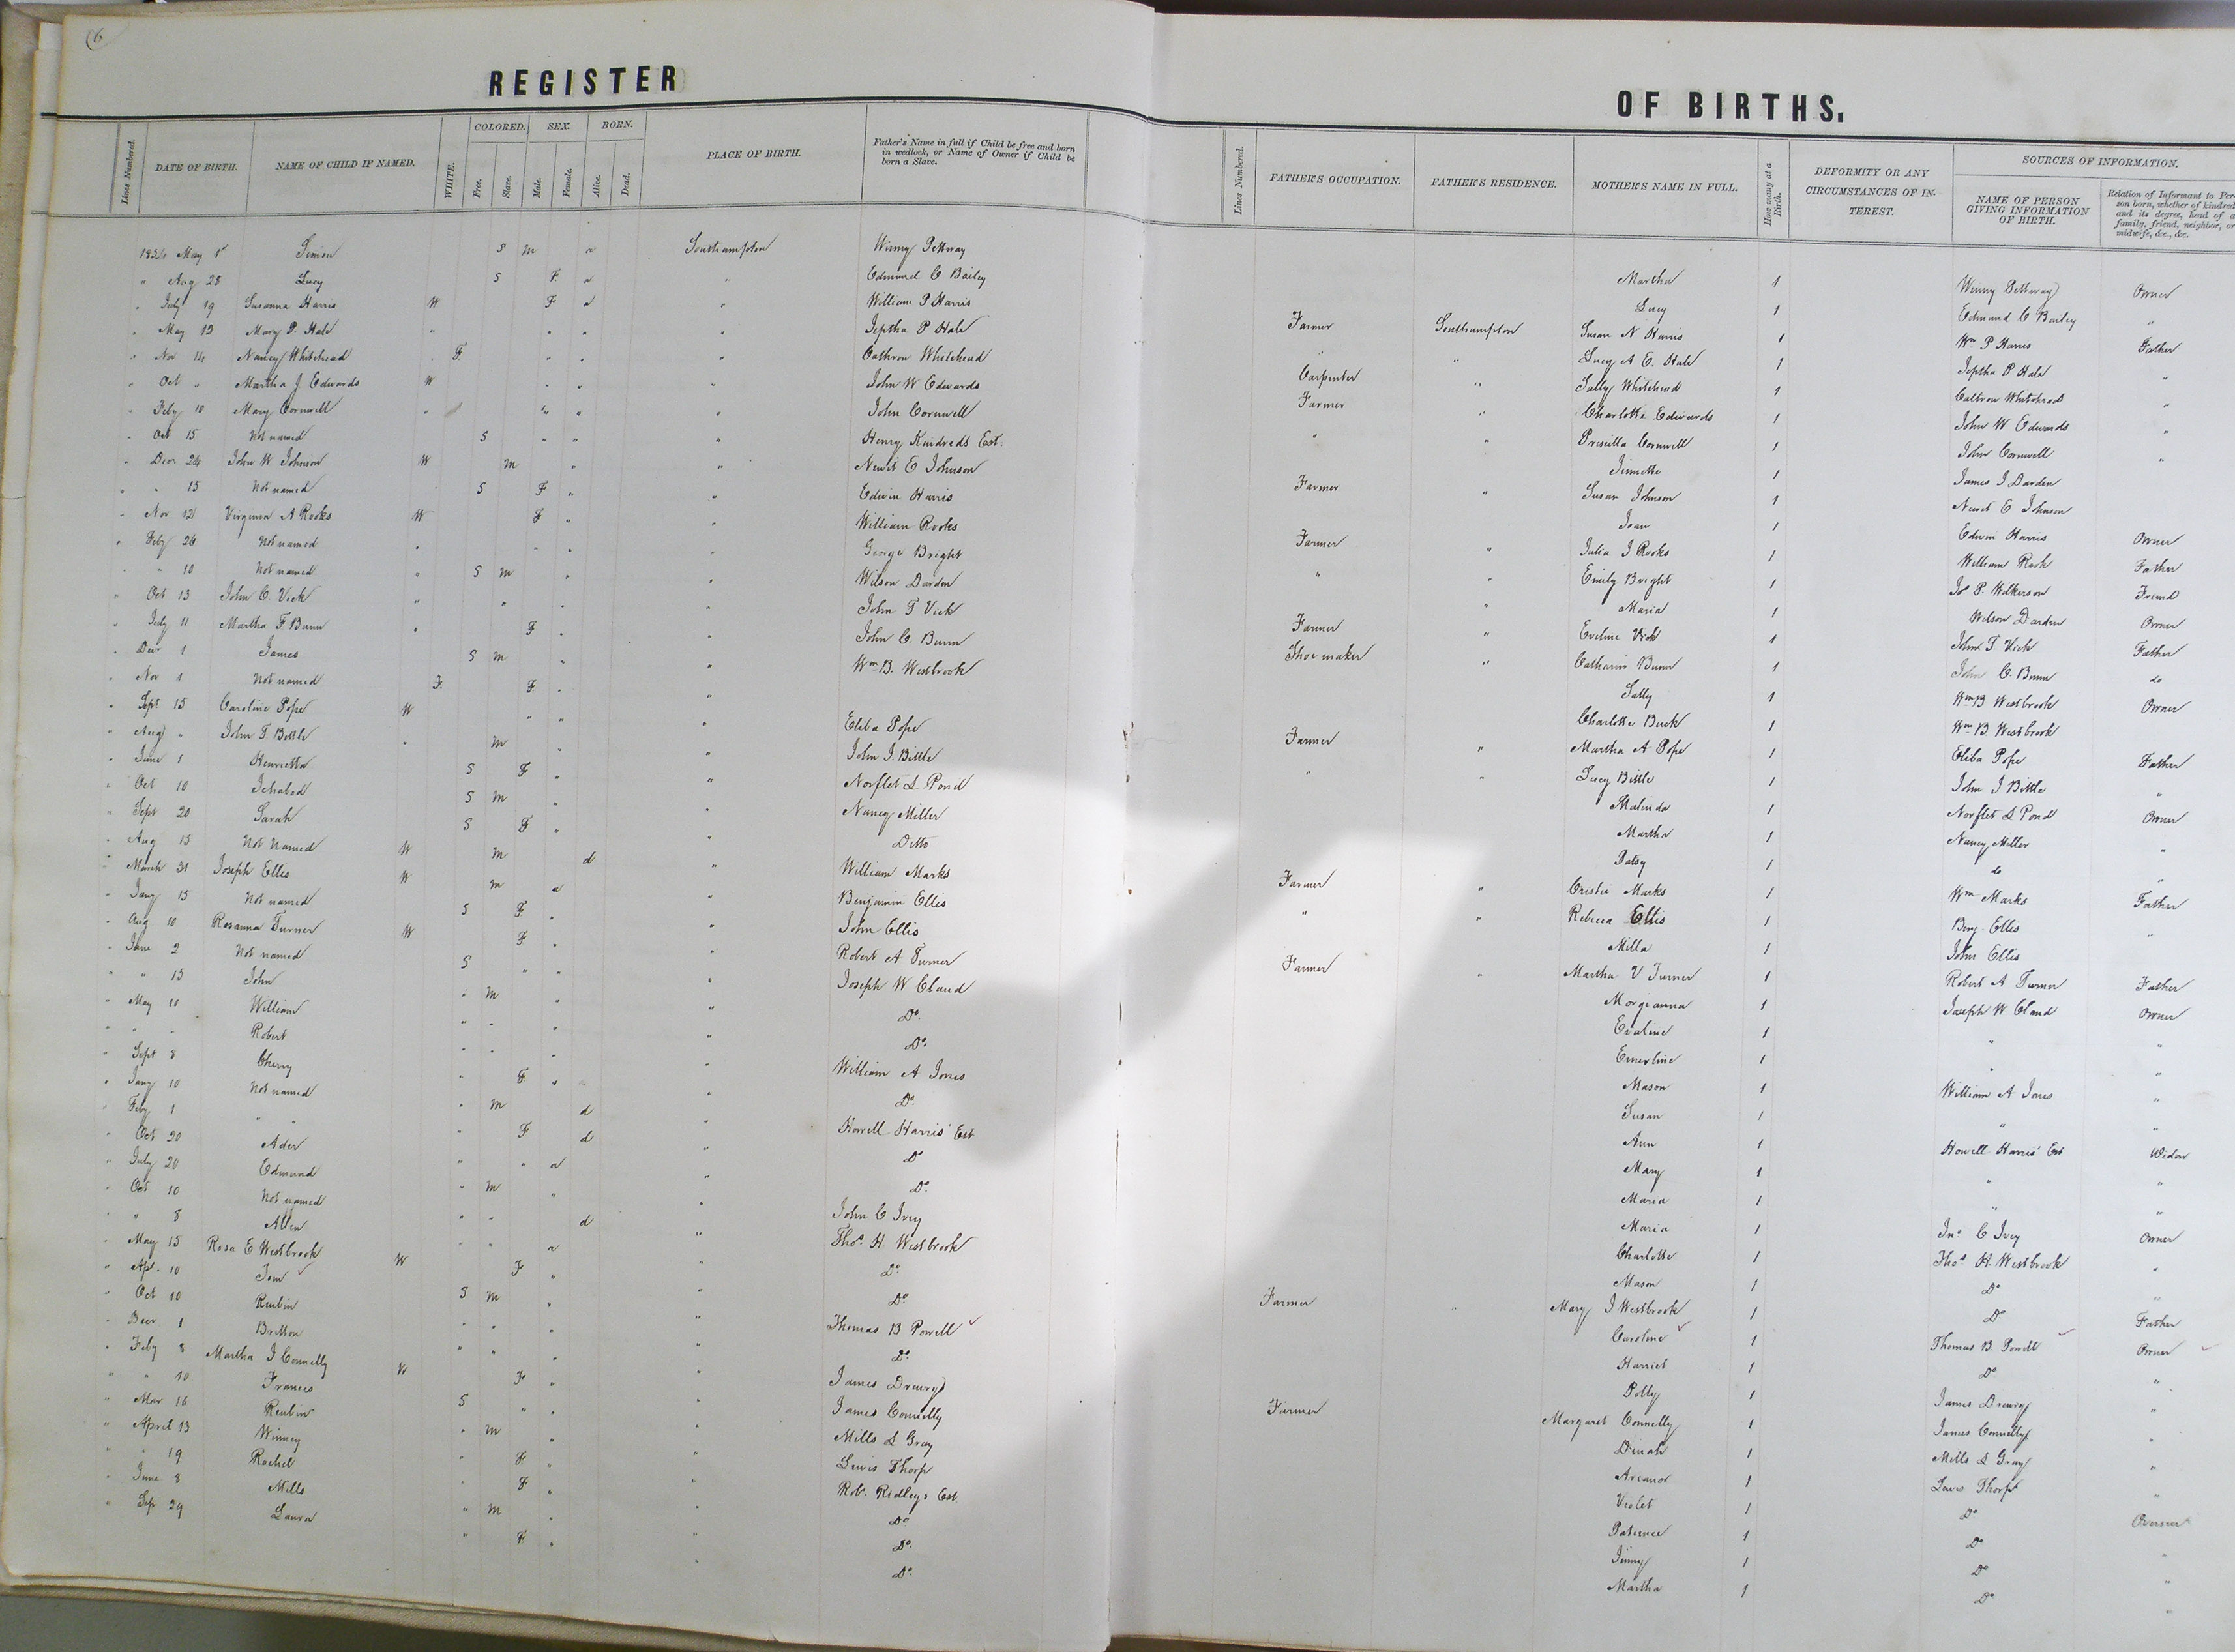 6
REGISTER
Lines Numbered. DATE OF BIRTH. NAME OF CHILD IF NAMED. WHITE. COLORED. Free. Slave. SEX. Male. Female. BORN. Alive. Dead. PLACE OF BIRTH. Father's Name in full if Child be free and born in wedlock, or Name of Owner if Child be born a Slave.
1854 May 1st Simon S m a Southampton Winny Pettway
" Aug 28 Lucy S F a " Edmund C Bailey
" July 19 Susanna Harris W F a " William P Harris
" May 12 Mary P. Hale " " " " Jeptha P Hale
" Nov 14 Nancy Whitehead F " " " Cathron Whitehead
" Oct " Martha J Edwards W " " " John W Edwards
" Feby 10 Mary Cornwell " " " " John Cornwell
" Oct 15 Not named S " " " Henry Kindreds Est.
" Decr 24 John W Johnson W m " " Newit E Johnson
" " 15 Not named S F " " Edwin Harris
" Nov 12 Virginia A Rooks W F " " William Rooks
" Feby 26 Not named " " " " George Bright
" " 10 Not named " S m " " Wilson Darden
" Oct 13 John C. Vick " " " " John T Vick
" July 11 Martha F Bunn " F " " John C. Bunn
" Decr 1 James S m " " Wm B. Westbrook
" Nov 1 Not named F. F " "
" Sept 15 Caroline Pope W " " " Eliba Pope
" Aug " John T Bittle " m " " John J. Bittle
" June 1 Henrietta S F " " Norflet L Pond
" Oct 10 Ichabod S m " " Nancy Miller
" Sept 20 Sarah S F " " Ditto
" Aug 15 Not Named W m d " William Marks
" March 31 Joseph Ellis W m a " Benjamin Ellis
" Jany 15 Not named S F " " John Ellis
" Aug 10 Rosanna Turner W F " " Robert A Turner
" June 2 Not named S " " " Joseph W Claud
" " 15 John " m " " Do.
" May 10 William " " " " Do.
" " " Robert " " " " William A Jones
" Sept 8 Cherry " F " " Do.
" Jany 10 Not named " m d " Howell Harris' Est
" Feby 1 " " " F d " Do
" Oct 20 Ader " " a " Do.
" July 20 Edmund " m " " John C Ivey
" Oct 10 Not named " " d " Thos. H. Westbrook
" " 8 Allen " " a " Do.
" May 15 Rosa E Westbrook W F " " Do.
" Apl. 10 Tom S m " " Thomas B Powell
" Oct 10 Reubin " " " " Do.
" Decr 1 Britton " " " " James Drewry
" Feby 8 Martha J Connelly W F " " James Connelly
" " 10 Frances S " " " Mills L Gray
" Mar 16 Reubin " m " " Lewis Thorp
" April 13 Winney " F. " " Rob. Ridleys Est
" " 19 Rachel " F " " Do.
" June 8 Mills " m " " Do.
" Sep 29 Laura " F " " Do.
OF BIRTHS.
Lines Numbered. FATHER'S OCCUPATION. FATHER'S RESIDENCE. MOTHER'S NAME IN FULL. How many at a Birth. DEFORMITY OR ANY CIRCUMSTANCES OF INTEREST. SOURCES OF INFORMATION. NAME OF PERSON GIVING INFORMATION OF BIRTH. Relation of Informant to Person born, whether of kindred and its degree, head of a family, friend, neighbor, or midwife, &c., &c.
Martha 1 Winny Pettway Owner
Lucy 1 Edmund C Bailey "
Farmer Southampton Susan N Harris 1 Wm P Harris Father
" " Lucy A E. Hale 1 Jeptha P Hale "
Carpenter " Sally Whitehead 1 Cathron Whitehead "
Farmer " Charlotte Edwards 1 John W Edwards "
" " Priscilla Cornwell 1 John Cornwell "
Jinnette 1 James J Darden
Farmer " Susan Johnson 1 Newit E Johnson
Jean 1 Edwin Harris Owner
Farmer " Julia J Rooks 1 William Rook Father
" " Emily Bright 1 Jos P. Wilkerson Friend
" Maria 1 Wilson Darden Owner
Farmer " Eveline Vick 1 John T Vick Father
Shoe maker " Catharin Bunn 1 John C. Bunn do
Sally 1 Wm B Westbrook Owner
Charlotte Buck 1 Wm B Westbrook
Farmer " Martha A Pope 1 Eliba Pope Father
" " Lucy Bittle 1 John J Bittle "
Malinda 1 Norflet L Pond Owner
Martha 1 Nancy Miller "
Patsy 1 do "
Farmer " Cristie Marks 1 Wm Marks Father
" " Rebecca Ellis 1 Benj. Ellis "
Milla 1 John Ellis
Farmer " Martha V Turner 1 Robert A Turner Father
Morgianna 1 Joseph W Claud Owner
Evaline 1 " "
Emerline 1 " "
Mason 1 William A Jones "
Susan 1 " "
Ann 1 Howell Harris' Est Widow
Mary 1 " "
Maria 1 " "
Maria 1 Jno C Ivey Owner
Charlotte 1 Thos H. Westbrook "
Mason 1 Do "
Farmer " Mary J Westbrook 1 Do Father
Caroline 1 Thomas B. Powell Owner
Harriet 1 Do "
Polly 1 James Drewry "
Farmer Margaret Connelly 1 James Connelly "
Dinah 1 Mills L Gray "
Arcanor 1 Lewis Thorp "
Violet 1 Do Overseer
Patience 1 Do "
Jinny 1 Do "
Martha 1 Do "